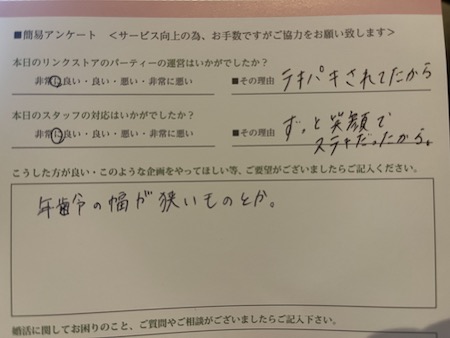 ■簡易アンケート ＜サービス向上の為、お手数ですがご協力をお願い致します＞
本日のリンクストアのパーティーの運営はいかがでしたか？
非常に良い・良い・悪い・非常に悪い ■その理由 テキパキされてたから
本日のスタッフの対応はいかがでしたか？
非常に良い・良い・悪い・非常に悪い ■その理由 ずっと笑顔で
ステキだったから。
こうした方が良い・このような企画をやってほしい等、ご要望がございましたらご記入ください。
年齢の幅が狭いものとか。
婚活に関してお困りのこと、ご質問やご相談がございましたらご記入下さい。